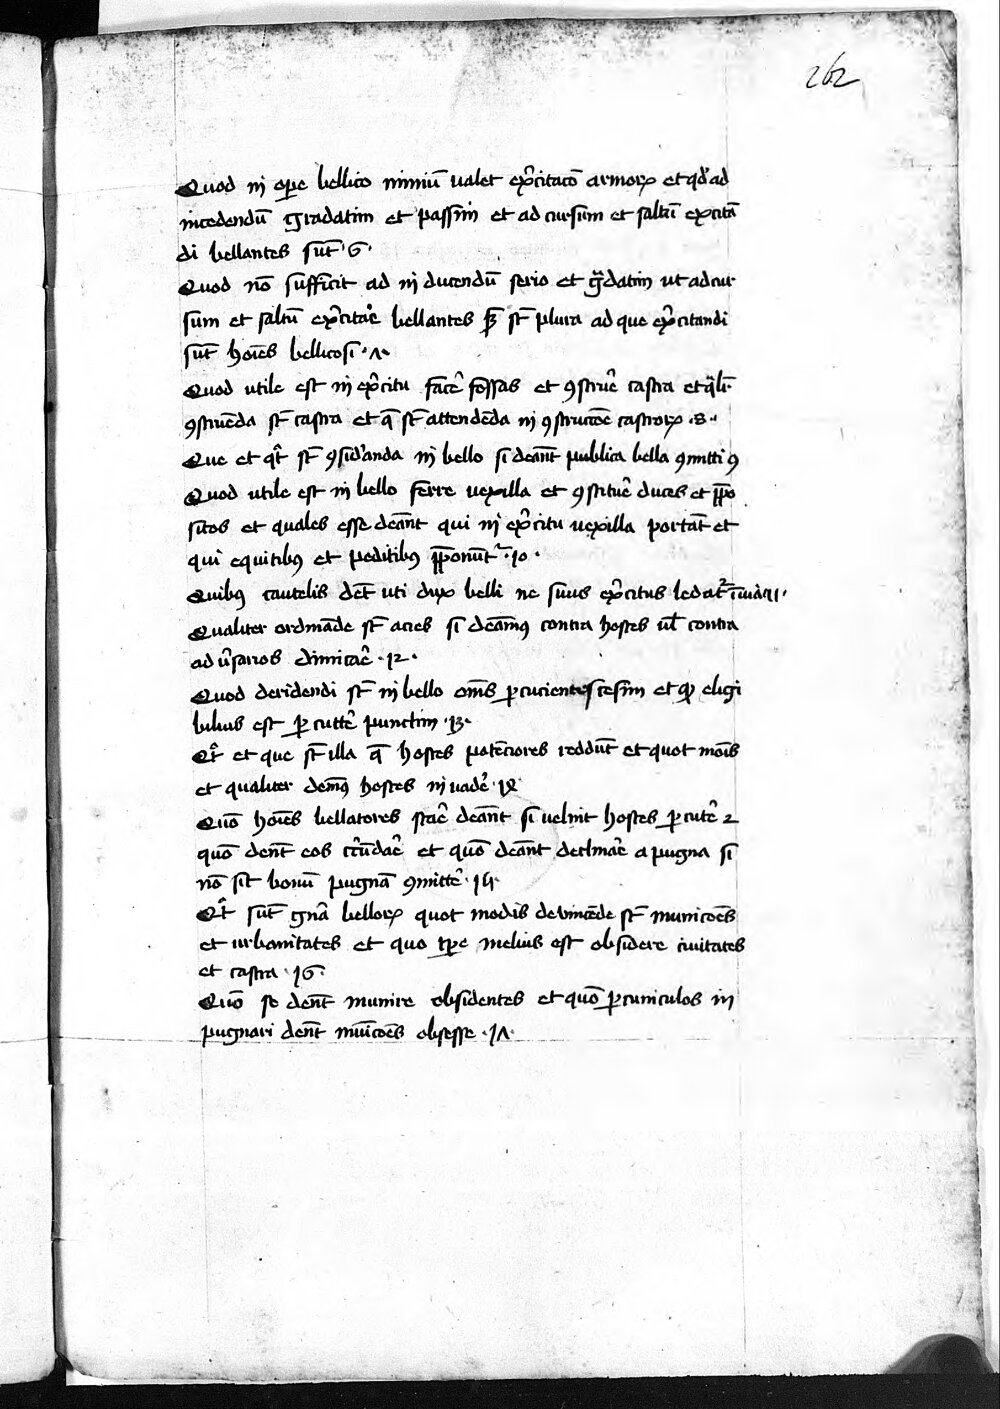 262
Quod in oꝑe bellico nimiū ualet exˀcitatō armoꝝ et qd' ad
incedendū gradatim et passim et ad cursum et saltū excitā
di bellantes sūt ·6·
Quod nō sufficit ad inducendū serio et gͣdatim ut ad cur
sum et saltū exˀcitaˀe bellantes sꝫ st̄ plura ad que exˀcitandi
sūt hoīes bellicosi ·7·
Quod utile est in exˀcitu facˀe fossas et ꝯstruˀe castra et qͣlr̄
ꝯstruēda st̄ castra et q̄ st̄ attendēda in ꝯstructōe castroꝝ ·8·
Que et qͦt st̄ ꝯsidˀanda in bello si deāt publica bella ꝯmitti 9
Quod utile est in bello ferre uexilla et ꝯstituˀe duces et p̄po
sitos et quales esse deānt qui in exˀcitu uexilla portāt et
qui equitibꝰ et peditibꝰ p̄ponūt᷑ ·10·
Quibꝰ cautelis det̄ uti dux belli ne suus exˀcitus ledat᷑ 11·
Qualiter ordināde st̄ acies si deāmꝰ contra hostes ul̄ contra
ad uˀsarios dimicaˀe ·12·
Quod deridendi st̄ in bello om̄s ꝑcucientes cesim et qꝫ eligi
bilius est ꝑcuttˀe punctim ·13·
Qͦt et que st̄ illa q̄ hostes potēciores reddūt et quot mōis
et qualiter demꝰ hostes inuadˀe ·14·
Quō hoīes bellatores staˀe deānt si uelint hostes ꝑcutˀe ⁊
quō dent̄ eos cˀcūdaˀe et quō deānt declinaˀe a pugna si
nō sit bonū pugnā ꝯmittˀe ·15·
Qͦt sūt gn̄a belloꝝ quot modis deuincēde st̄ municōes
et urbanitates et quo tꝑe melius est obsidere ciuitates
et castra ·16·
Quō se dent̄ munire obsidentes et quō ꝑ cuniculos in
pugnari dent̄ mūicōes obsesse ·17·